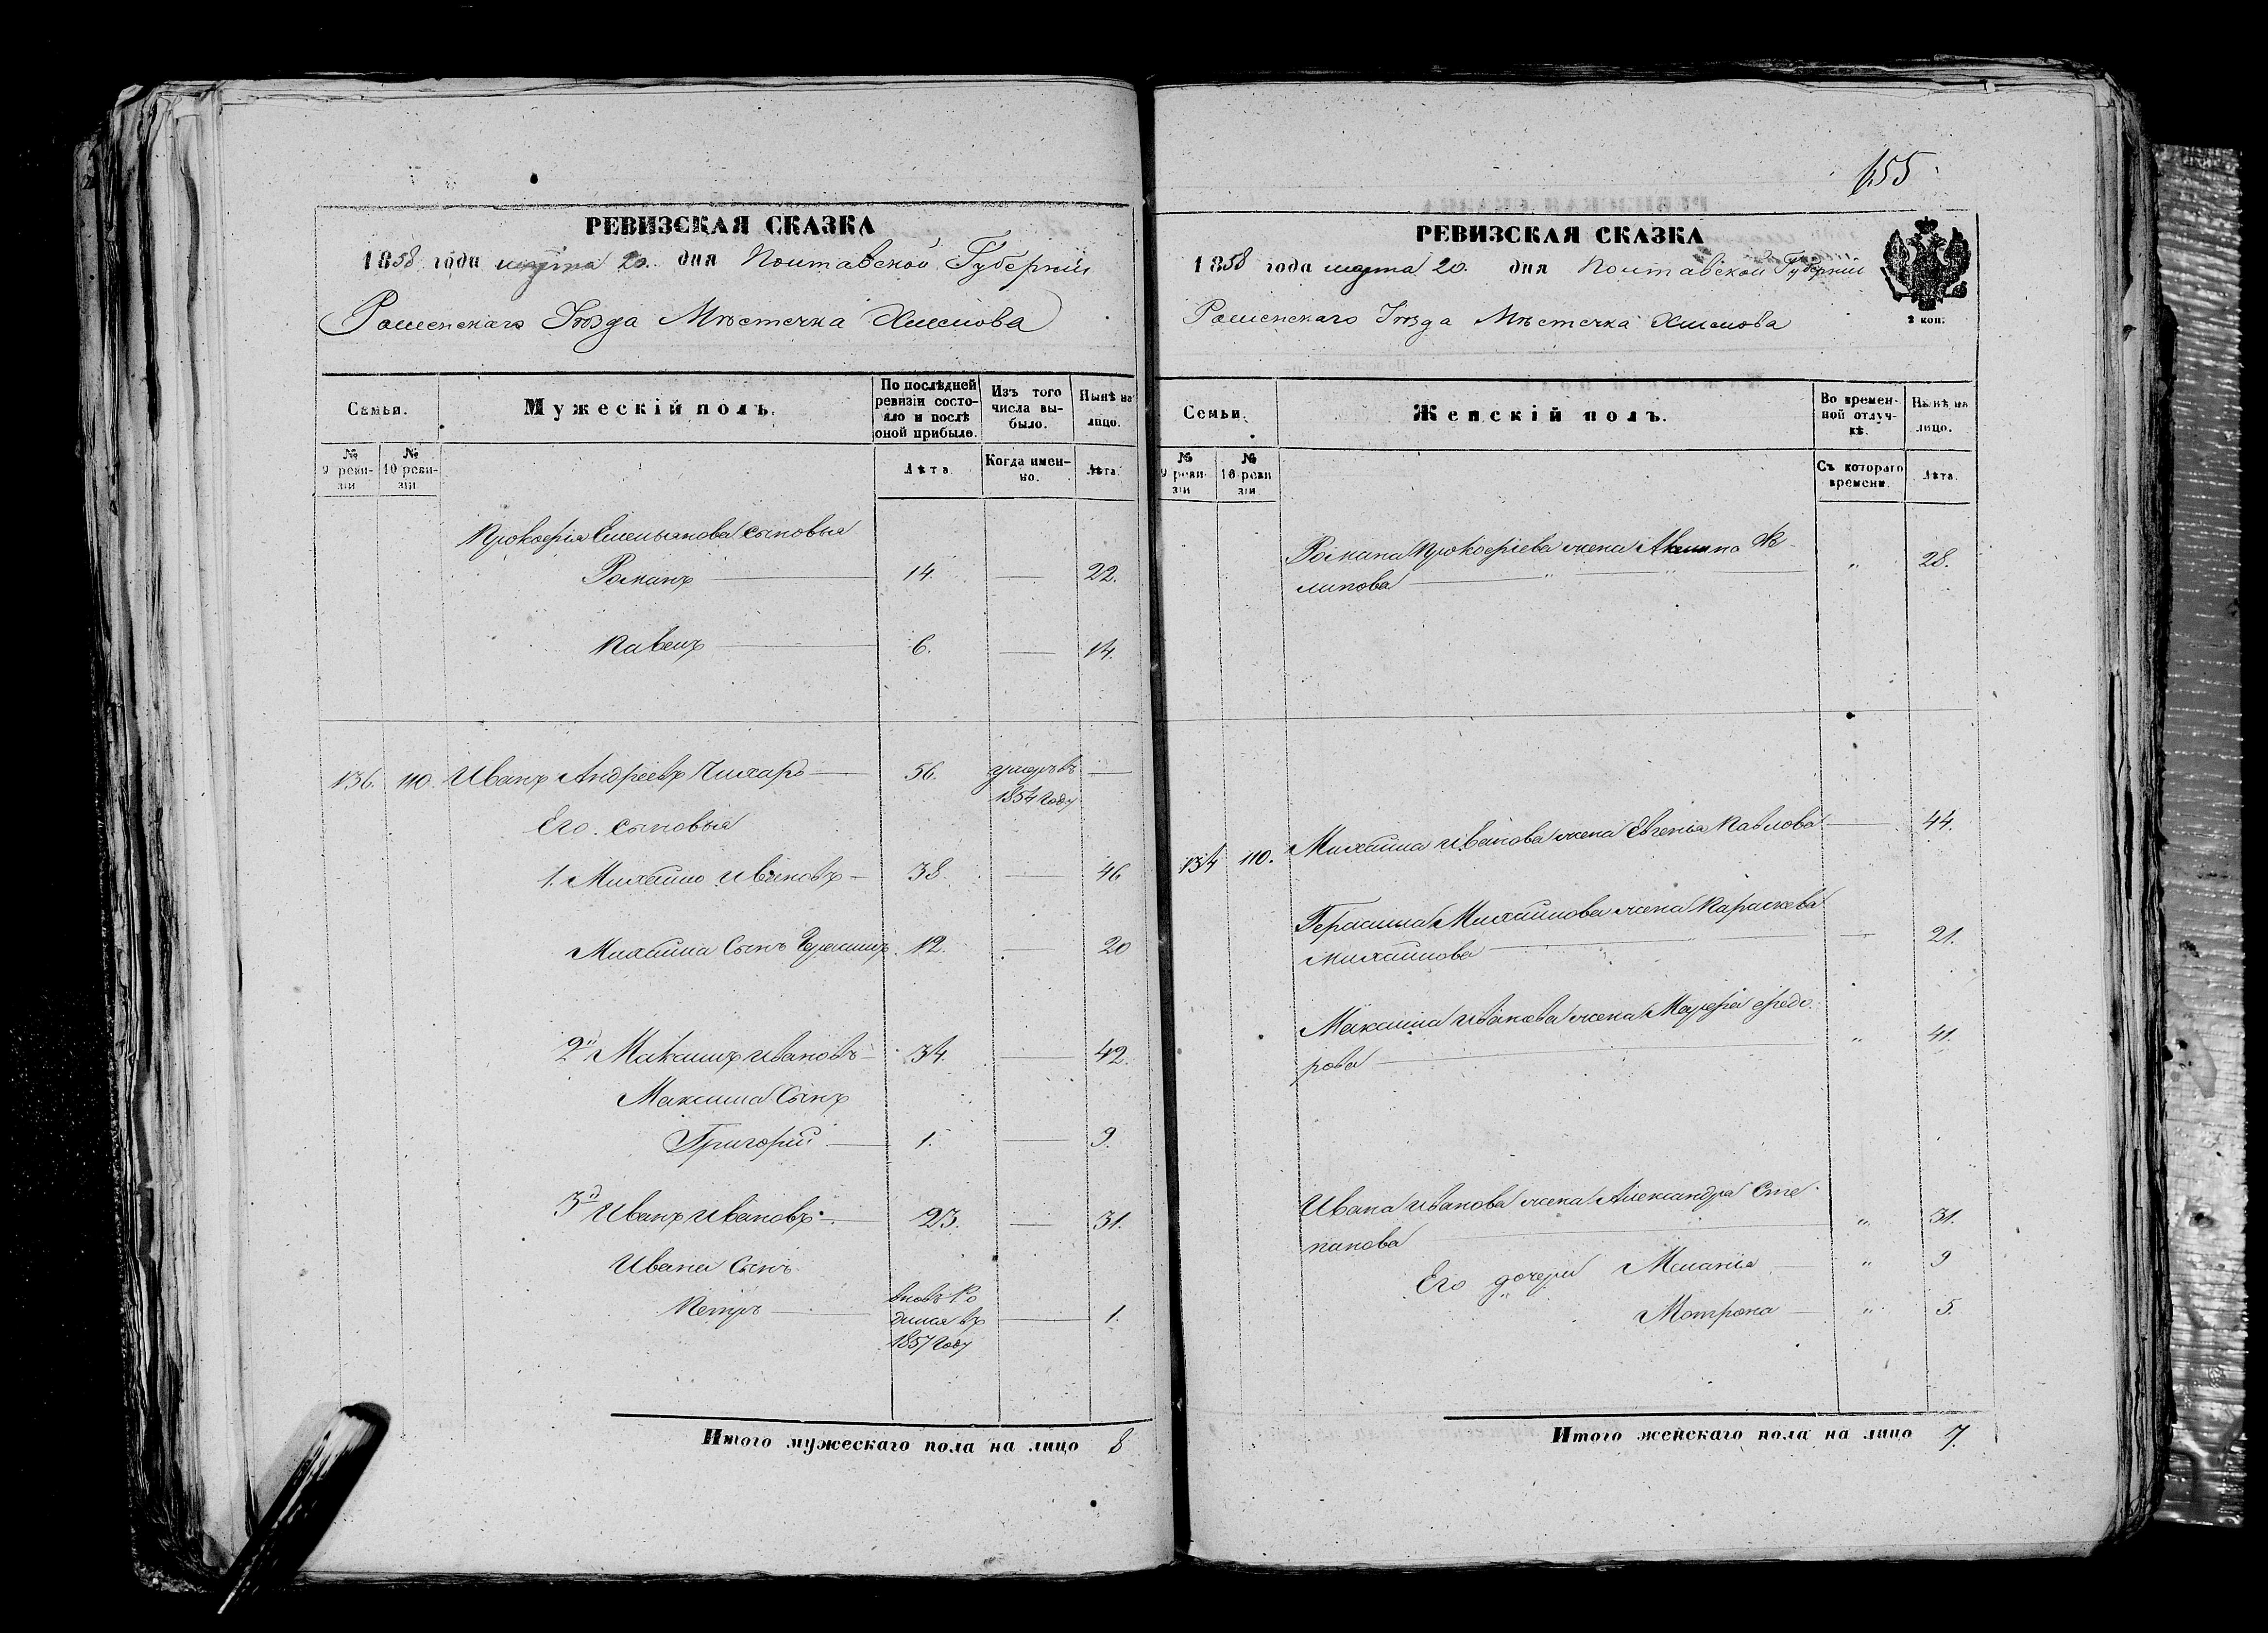 РЕВИЗСКАЯ СКАЗКА
1858 года марта 20. дня Полтавской Губерніи
Роменскаго Уѣзда Мѣстечка Хмелова
Семьи.
Мужескій полъ.
По послѣдней ревизіи состо-
яло и послѣ
оной прибыло.
Изъ того
числа вы-
было.
Нынѣ на
лицо.
№ 9 реви-
зіи
№ 10 реви-
зіи
Лѣта.
Когда имен-
но.
Лѣта.
Прокофія Емельянова сыновья
Романъ 14. 22.
Павелъ 6. 14.
136. 110. Иванъ Андреевъ 56. умеръ въ
1854 году
Его сыновья
1. Михайло Ивановъ 38. 46
Михайла Сынъ Герасимъ 12. 20
2й Максимъ Ивановъ 34. 42.
Максима Сынъ
Григорій 1. 9.
3й Иванъ Ивановъ 23. 31.
Ивана Сынъ
Петръ вновь ро
дился въ
1857 году 1.
Итого мужескаго пола на лицо 8
655
РЕВИЗСКАЯ СКАЗКА
1858 года марта 20. дня Полтавской Губерніи
Роменскаго Уѣзда Мѣстечка Хмелова
2 коп.
Семьи.
Женскій полъ.
Во времен-
ной отлуч-
кѣ.
Нынѣ на
лицо.
№ 9 реви-
зіи
№ 10 реви
зіи
Съ котораго
времени.
Лѣта.
Романа Прокофіева жена
липова " 28.
134 110. Михайла Иванова жена Евгенія Павлова 44.
Герасима Михайлова жена Параскева
Михайлова 21.
Максима Иванова жена Федо
рова " 41.
Ивана Иванова жена Александра Сте
панова " 31.
Его дочери Меланія " 9
Мотрона " 5.
Итого женскаго пола на лицо 7.